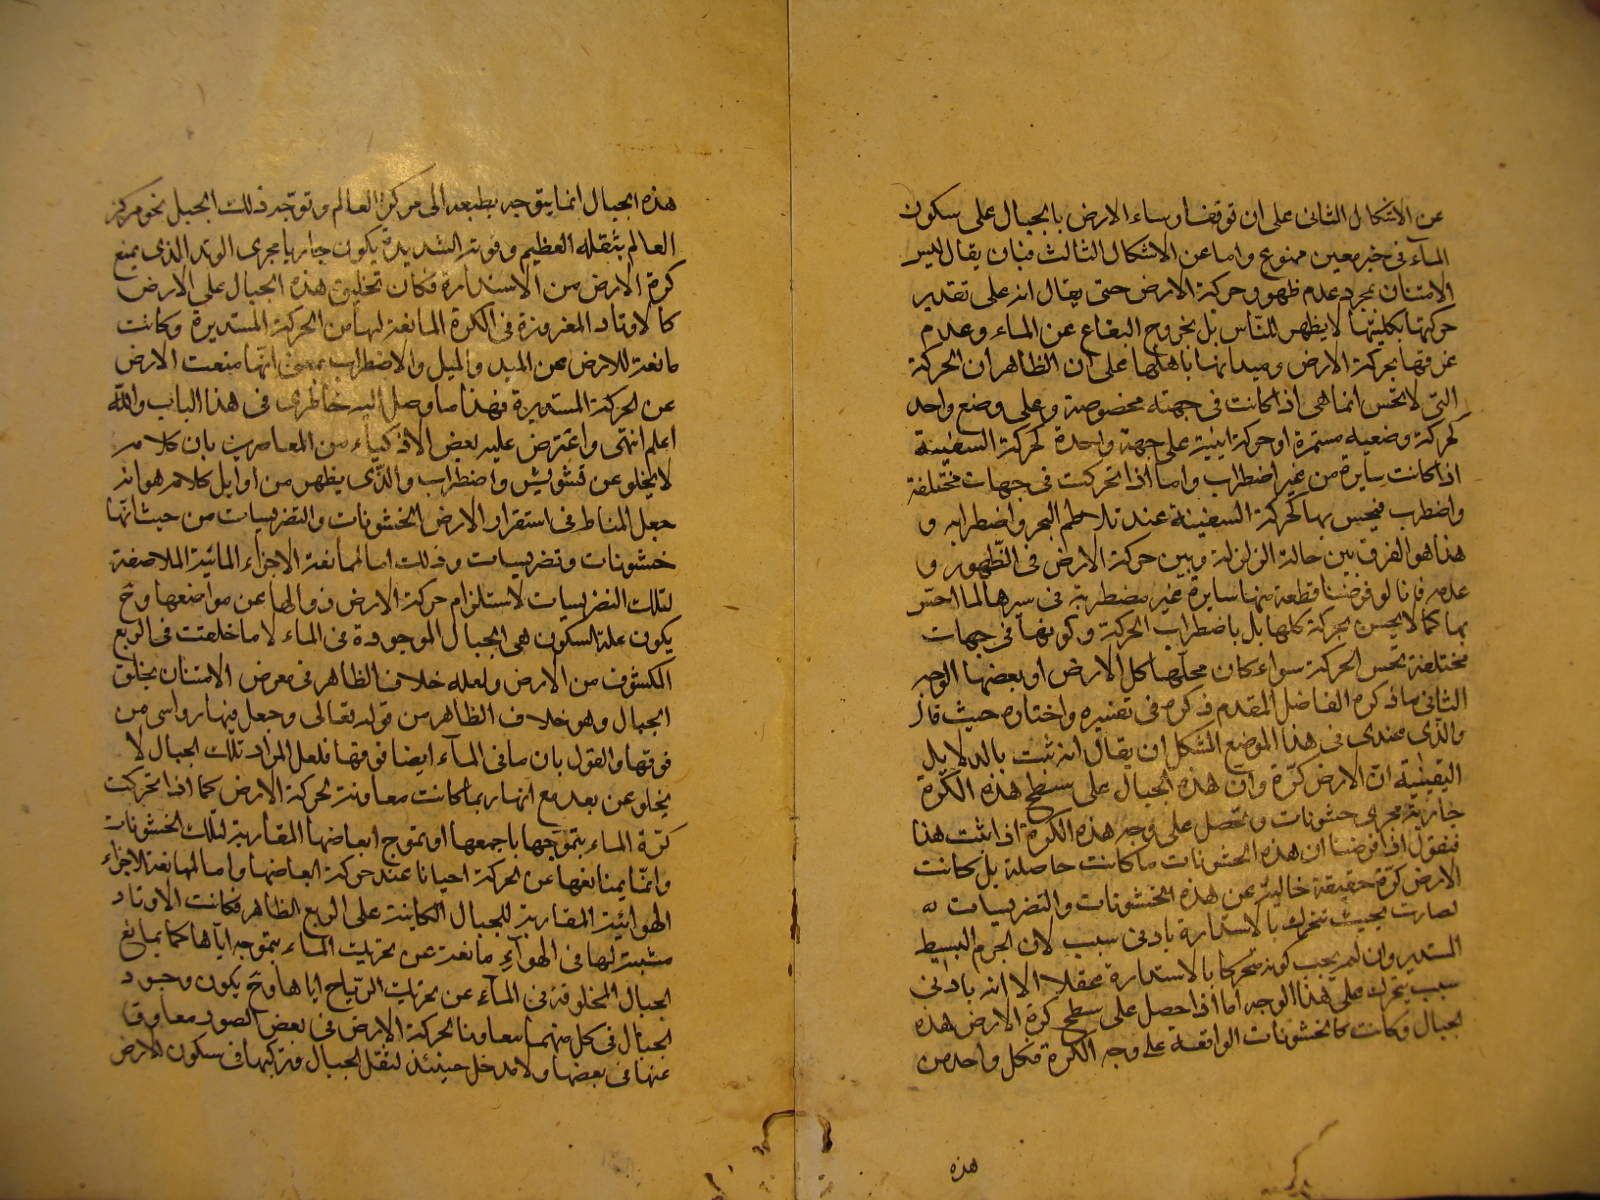 عن الاشكال الثانى على ان توقف ارساء الارض بالجبال على سكون
الماء فى حيز معين ممنوع واما عن الاشكال الثالث فبان يقال ليس
الامتنان بمجرد عدم ظهور حركة الارض حتى يقال انه على تقدير
حركتها بكليتها لا يظهر للناس بل بخروج البقاع عن الماء وعدم
غرقها بحركة الارض وميدانها باهلها على ان الظاهر ان الحركة
التى لا تحس انما هى اذا كانت فى جهة مخصوصة وعلى وضع واحد
كحركة وضعية مستمرة او حركة اينية على جهة واحدة كحركة السفينة
اذا كانت سايرة من غير اضطراب واما اذا تحركت فى جهات مختلفة
واضطرب فيحس بها كحركة السفينة عند تلاطم البحر واضطرابه و
هذا هو الفرق بين حالة الزلزلة وبين حركة الارض فى الظهور و
عدمه فانا لو فرضنا قطعة منها سايرة غير مضطربة فى سيرها لما احس
بها كما لا يحس بحركة كلها بل باضطراب الحركة وكونها فى جهات
مختلفة تحس الحركة سواء كان محلها كل الارض او بعضها الوجه
الثانى ما ذكره الفاضل المقدم ذكره فى تفسيره واختاره حيث قال
والذى عندى فى هذا الموضع المشكل ان يقال انه ثبت بالدلايل
اليقينية ان الارض كرة وان هذه الجبال على سطح هذه الكرة
جارية مجرى خشونات وتحصل على وجه هذه الكرة اذا ثبت هذا
فنقول اذا فرضنا ان هذه الخشونات ما كانت حاصلة بل كانت
الارض كرة حقيقة خالية عن هذه الخشونات والتضريسات
لصارت بحيث تتحرك بالاستدارة بادنى سبب لان الجرم البسيط
المستدير وان لم يجب كونه متحركا بالاستدارة عقلا الا انه بادنى
سبب يتحرك على هذا الوجه اما اذا حصل على سطح كرة الارض هذه
الجبال وكانت كالخشونات الواقعة على وجه الكرة فكل واحد من
هذه
هذه الجبال انما يتوجه بطبعه الى مركز العالم وتوجه ذلك الجبل نحو مركز
العالم بثقله العظيم وقوته الشديدة يكون جاريا مجرى الوتد الذى يمنع
كرة الارض من الاستدارة فكان تخليق هذه الجبال على الارض
كالاوتاد المغروزة فى الكرة المانعة لها من الحركة المستديرة وكانت
مانعة للارض عن الميد والميل والاضطراب بمعنى انها منعت الارض
عن الحركة المستديرة فهذا ما وصل اليه خاطرى فى هذا الباب والله
اعلم انتهى واعترض عليه بعض الاذكياء من المعاصرين بان كلامه
لا يخلو عن تشويش واضطراب والذى يظهر من اوايل كلامه هو انه
جعل المناط فى استقرار الارض الخشونات والتضريسات من حيث انها
خشونات وتضريسات وذلك اما لممانعة الاجزاء المائية الملاصقة
لتلك التضريسات لاستلزام حركة الارض زوالها عن مواضعها وح
يكون علة السكون هى الجبال الموجودة فى الماء لا ما خلقت فى الربع
المكشوف من الارض ولعله خلاف الظاهر فى معرض الامتنان بخلق
الجبال وهو خلاف الظاهر من قوله تعالى وجعل فيها رواسى من
فوقها والقول بان ما فى الماء ايضا فوقها فلعل المراد تلك الجبال لا
يخلو عن بعد مع انها ربما كانت معاونة لحركة الارض كما اذا تحركت
كرة الماء بتموجها باجمعها او بتموج ابعاضها المقاربة لتلك الخشونات
وانما يمنابعها عن الحركة احيانا عند حركة ابعاضها واما لممانعة الاجزاء
الهوائية المقاربة للجبال الكاينة على الربع الظاهر فكانت الاوتاد
مثبتة لها فى الهواء مانعة عن تحريك الماء بتموجه اياها كما يمانع
الجبال المخلوقة فى الماء عن تحريك الرياح اياها وح يكون وجود
الجبال فى كل منهما معاونا لحركة الارض فى بعض الصور معاوقا
عنها فى بعضها ولا مدخل حينئذ لثقل الجبال وتركبها فى سكون الارض